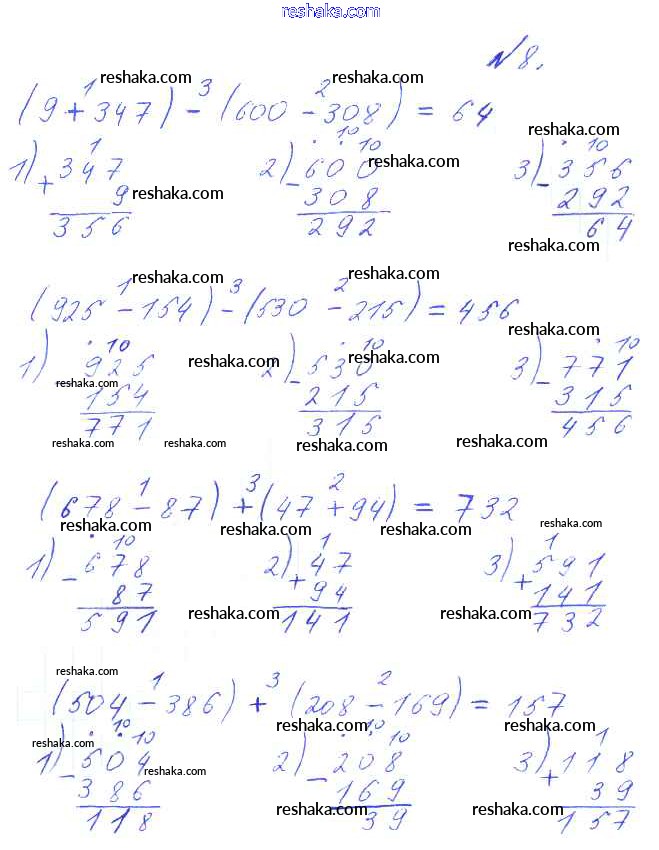 reshaka.com
№ 8.
reshaka.com reshaka.com
1 3 2
(9 + 347) - (600 - 308) = 64
reshaka.com
1) 1 2) · 10 · 10 3) · 10
+ 347 - 600 - 356
reshaka.com
9 308 292
reshaka.com reshaka.com
356 292 64
reshaka.com
reshaka.com reshaka.com
1 3 2
(925 - 154) - (530 - 215) = 456
reshaka.com
1) · 10 2) · 10 3) · 10
925 - 530 - 771
reshaka.com reshaka.com reshaka.com
154 215 315
reshaka.com
771 315 456
reshaka.com reshaka.com reshaka.com reshaka.com
1 3 2
(678 - 87) + (47 + 94) = 732
reshaka.com reshaka.com reshaka.com reshaka.com
1) · 10 2) 1 3) 1
- 678 + 47 + 591
87 94 141
591 141 732
reshaka.com reshaka.com
reshaka.com
1 3 2
(504 - 386) + (208 - 169) = 157
reshaka.com reshaka.com reshaka.com reshaka.com
1) · 10 · 10 2) · 10 · 10 3) 1
- 504 - 208 + 118
reshaka.com
386 169 39
118 39 157
reshaka.com reshaka.com reshaka.com